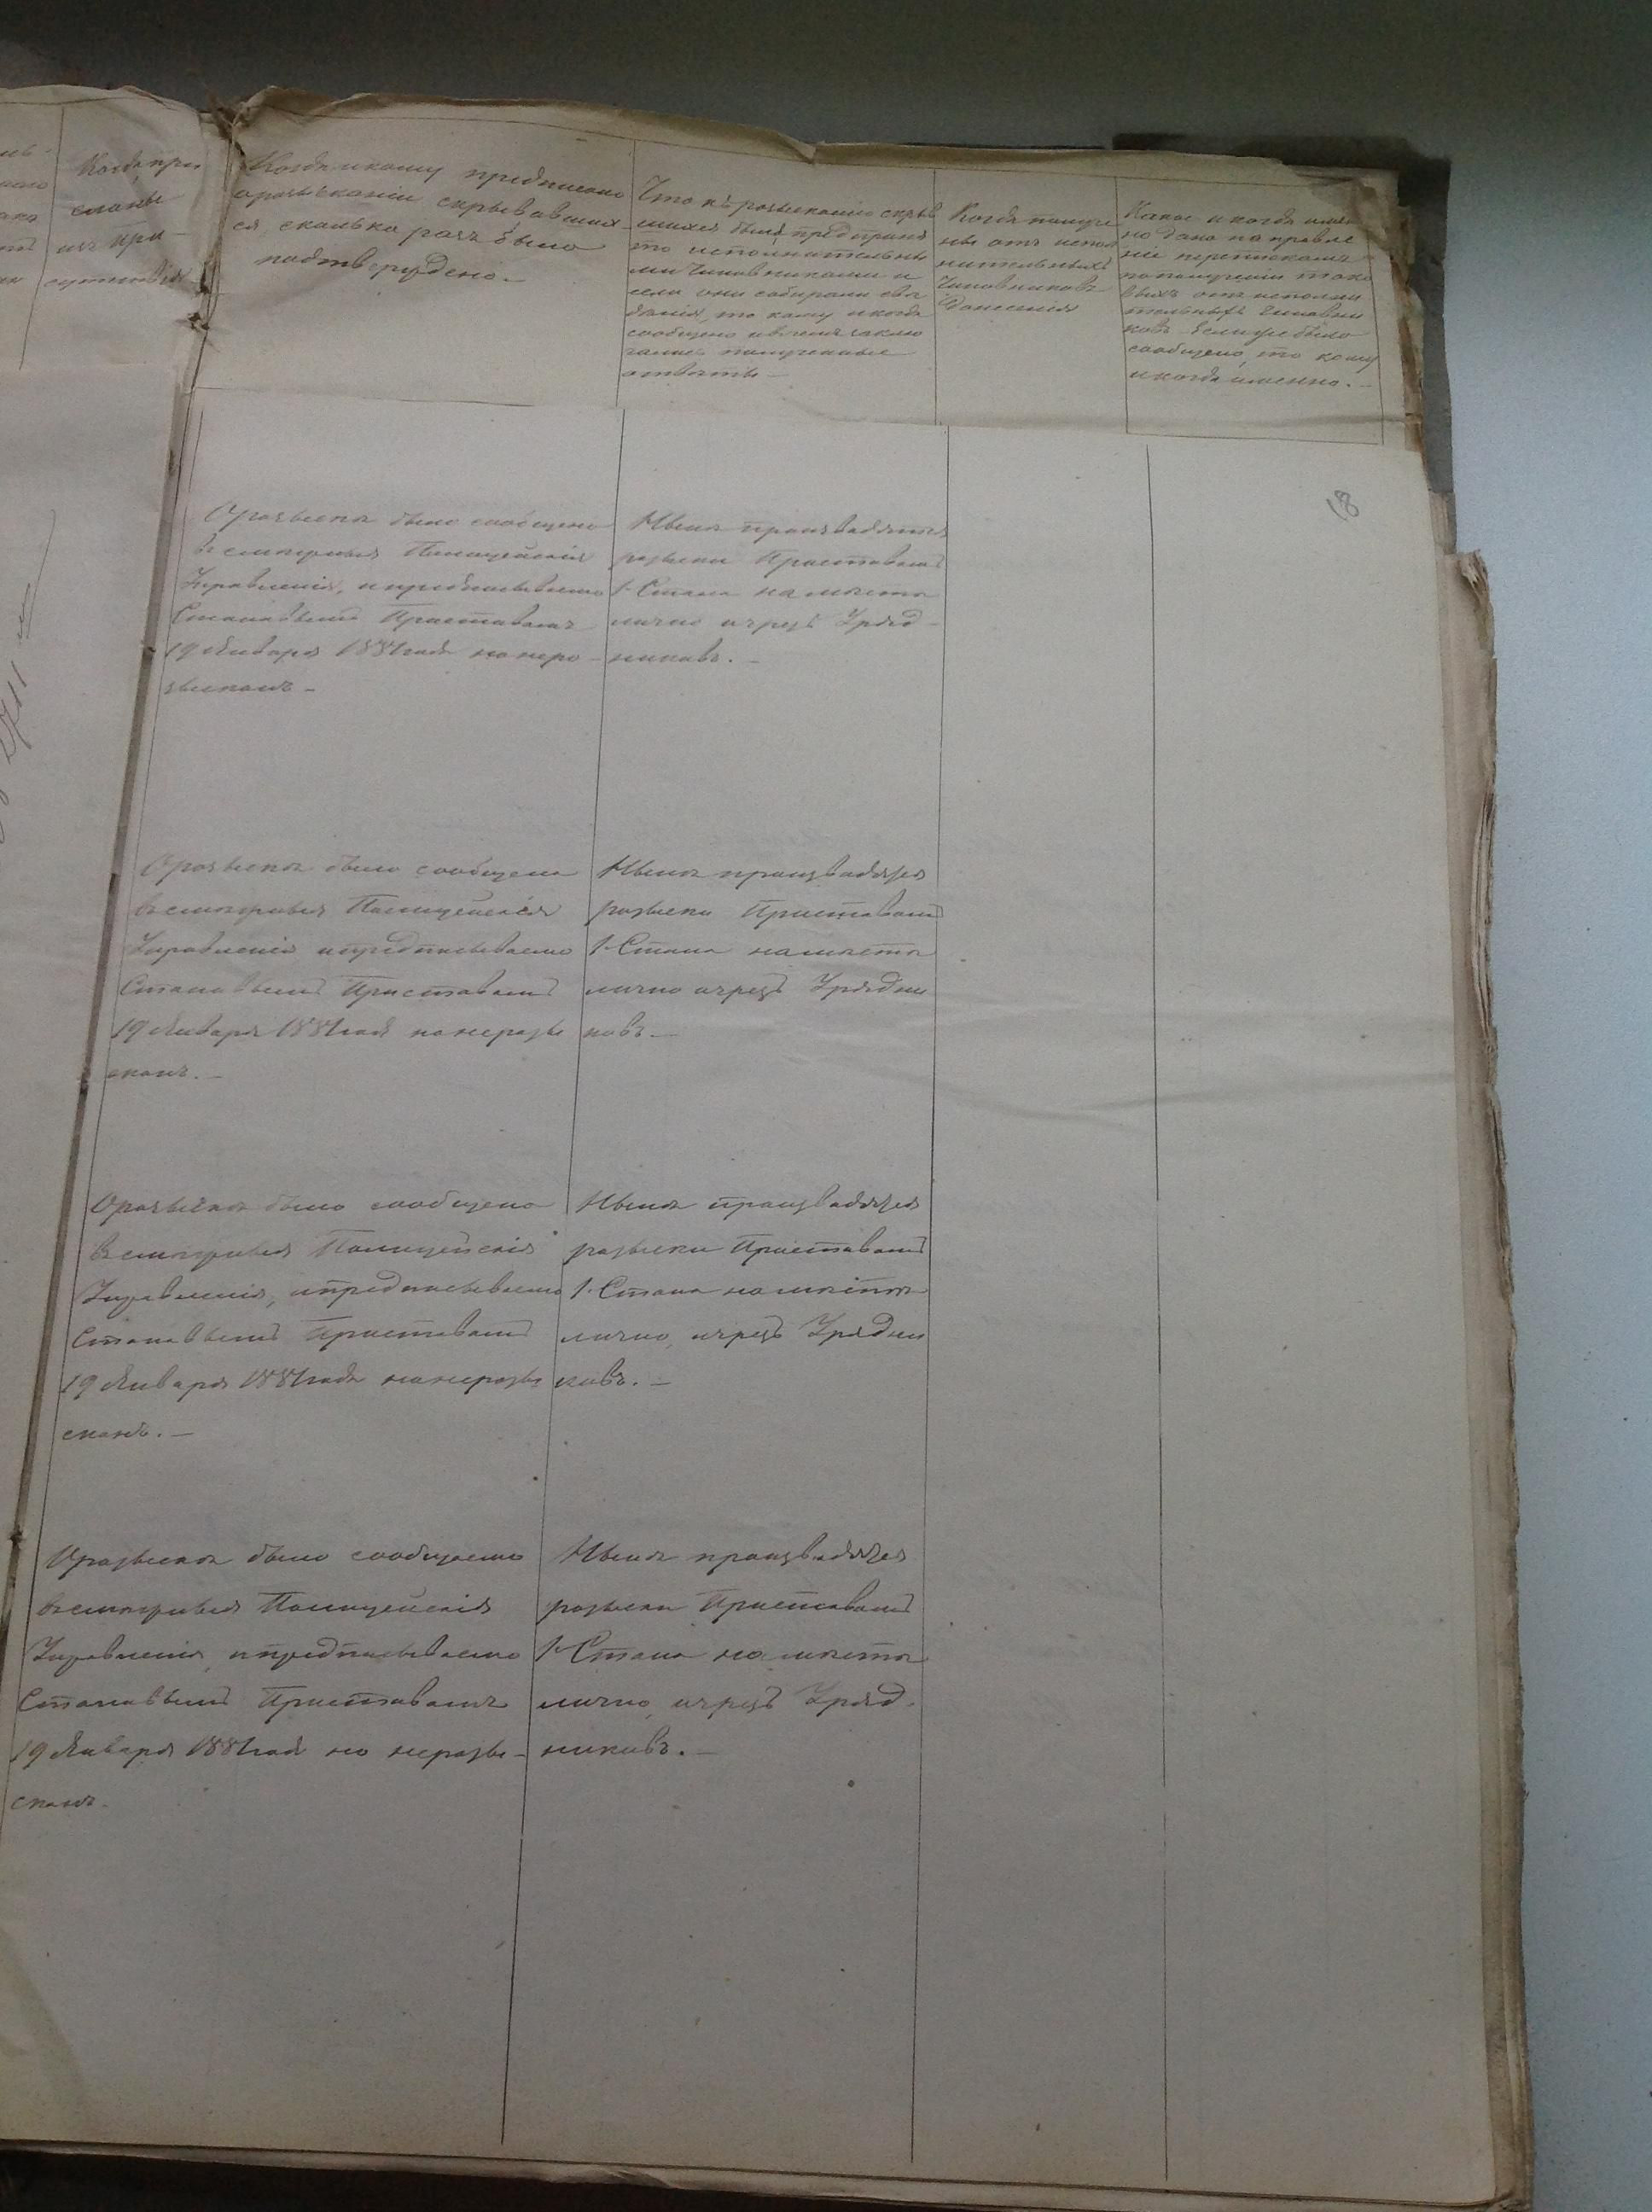 Когда при
сланы
изъ при-
сутствія
Когда и кому предписано
о розысканіи скрывавших-
ся, сколько разъ было
подтверждено.-
Что къ розысканію скрыв
шихся было предприня
то исполнительны
ми чиновниками и
если они собирали свѣ
дѣнія, то кому и когда
сообщено и въ чемъ заклю
чались полученные
отвѣты-
Когда получе
ны отъ испол
нительныхъ
чиновниковъ
донесенія
Какое и когда имен
но дано направле
ніе перепискамъ
по полученіи тако
выхъ отъ исполни
тельныхъ чиновни
ковъ. Если же было
сообщено, то кому
и когда именно.-
18
О розыскѣ было сообщено
въ смежныя Полицейскія
Управленія, и предписываемо
Становымъ Приставамъ
19 Января 1881 года но не ро-
зысканъ-
Нынѣ производятся
розыски Приставомъ
1 Стана на мѣстѣ
лично и чрезъ Уряд-
никовъ.-
О розыскѣ было сообщено
въ смежныя Полицейскія
Управленія и предписываемо
Становымъ Приставамъ
19 Января 1881 года но не розы
сканъ.-
Нынѣ производятся
розыски Приставомъ
1 Стана на мѣстѣ
лично и чрезъ Урядни
ковъ-
О розыскѣ было сообщено
въ смежныя Полицейскія
Управленія, и предписываемо
Становымъ Приставамъ
19 Января 1881 года но не розы
сканъ.-
Нынѣ производятся
розыски Приставомъ
1 Стана на мѣстѣ
лично, и чрезъ Урядни
ковъ.-
О розыскѣ было сообщаемо
въ смежныя Полицейскія
Управленія, и предписываемо
Становымъ Приставамъ
19 Января 1881 года но не розы-
сканъ.
Нынѣ производятся
розыски Приставомъ
1 Стана на мѣстѣ
лично, и чрезъ Уряд-
никовъ.-